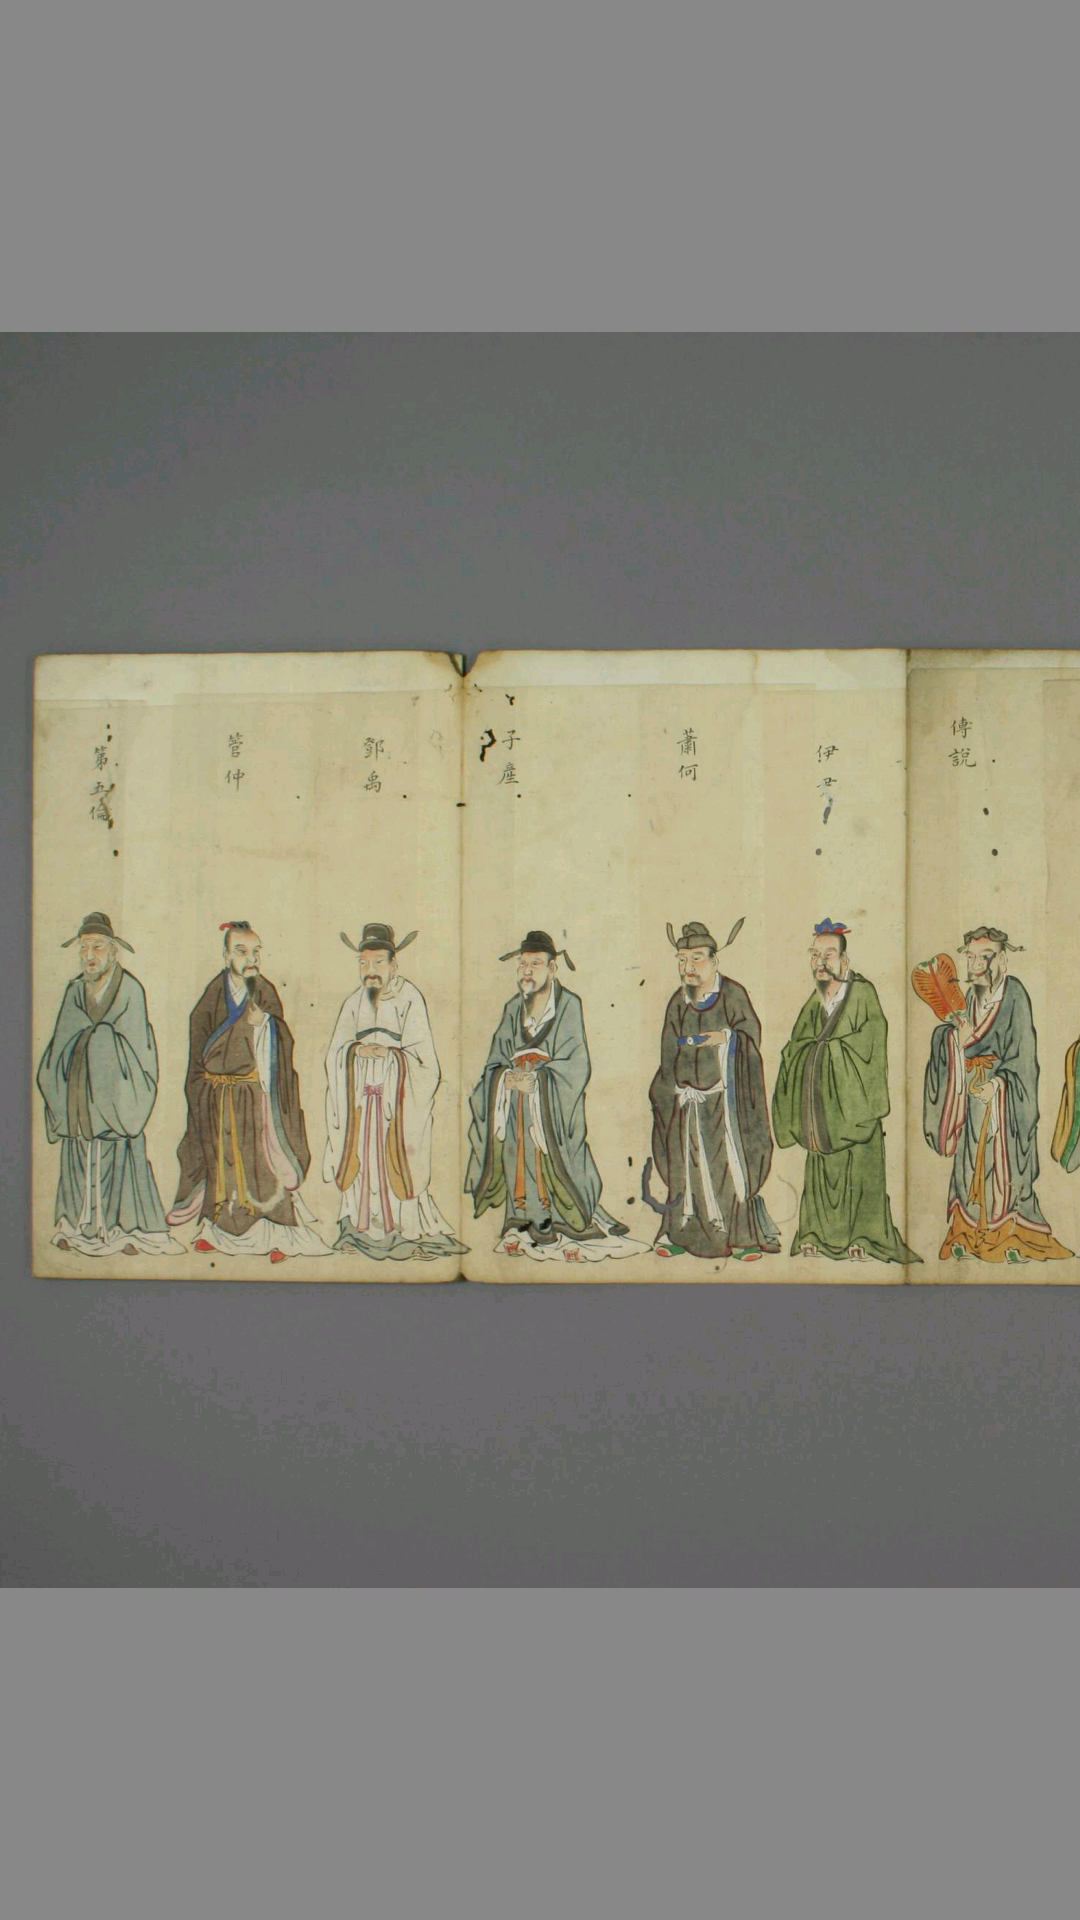 傅説
伊尹
蕭何
子産
鄧禹
管仲
第五倫